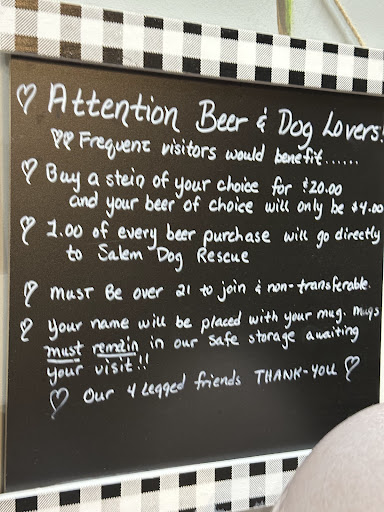 ♡ Attention Beer & Dog Lovers!
♡♡ Frequent visitors would benefit......
♡ Buy a stein of your choice for $20.00
and your beer of choice will only be $4.00
♡ 1.00 of every beer purchase will go directly
to Salem Dog Rescue
♡ Must Be over 21 to join & non-transferable.
♡ your name will be placed with your mug. mugs
must remain in our safe storage awaiting
your visit!!
♡ Our 4 Legged friends THANK-YOU ♡